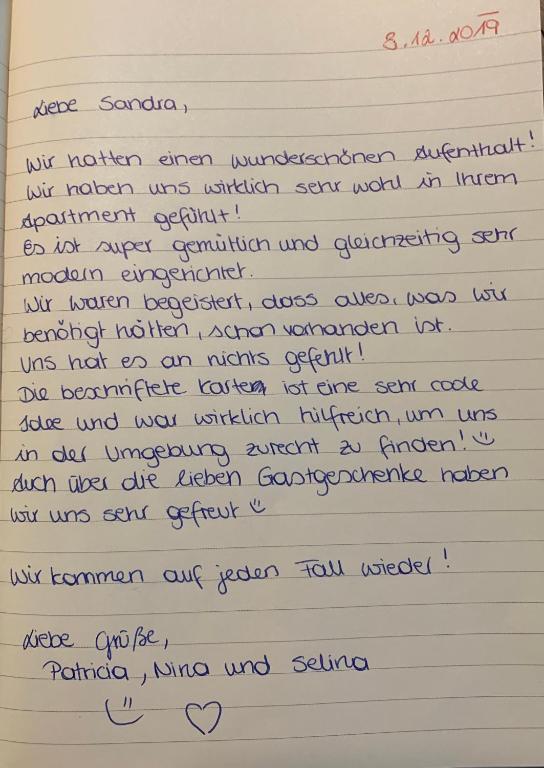 8.12.2019
Liebe Sandra,
Wir hatten einen wunderschönen Aufenthalt!
Wir haben uns wirklich sehr wohl in Ihrem
Apartment gefühlt!
Es ist super gemütlich und gleichzeitig sehr
modern eingerichtet.
Wir waren begeistert, dass alles, was wir
benötigt hätten, schon vorhanden ist.
Uns hat es an nichts gefehlt!
Die beschriftete Karte ist eine sehr coole
Idee und war wirklich hilfreich, um uns
in der Umgebung zurecht zu finden! ☺
Auch über die lieben Gastgeschenke haben
wir uns sehr gefreut ☺
Wir kommen auf jeden Fall wieder!
Liebe Grüße,
Patricia, Nina und Selina
☺ ♡